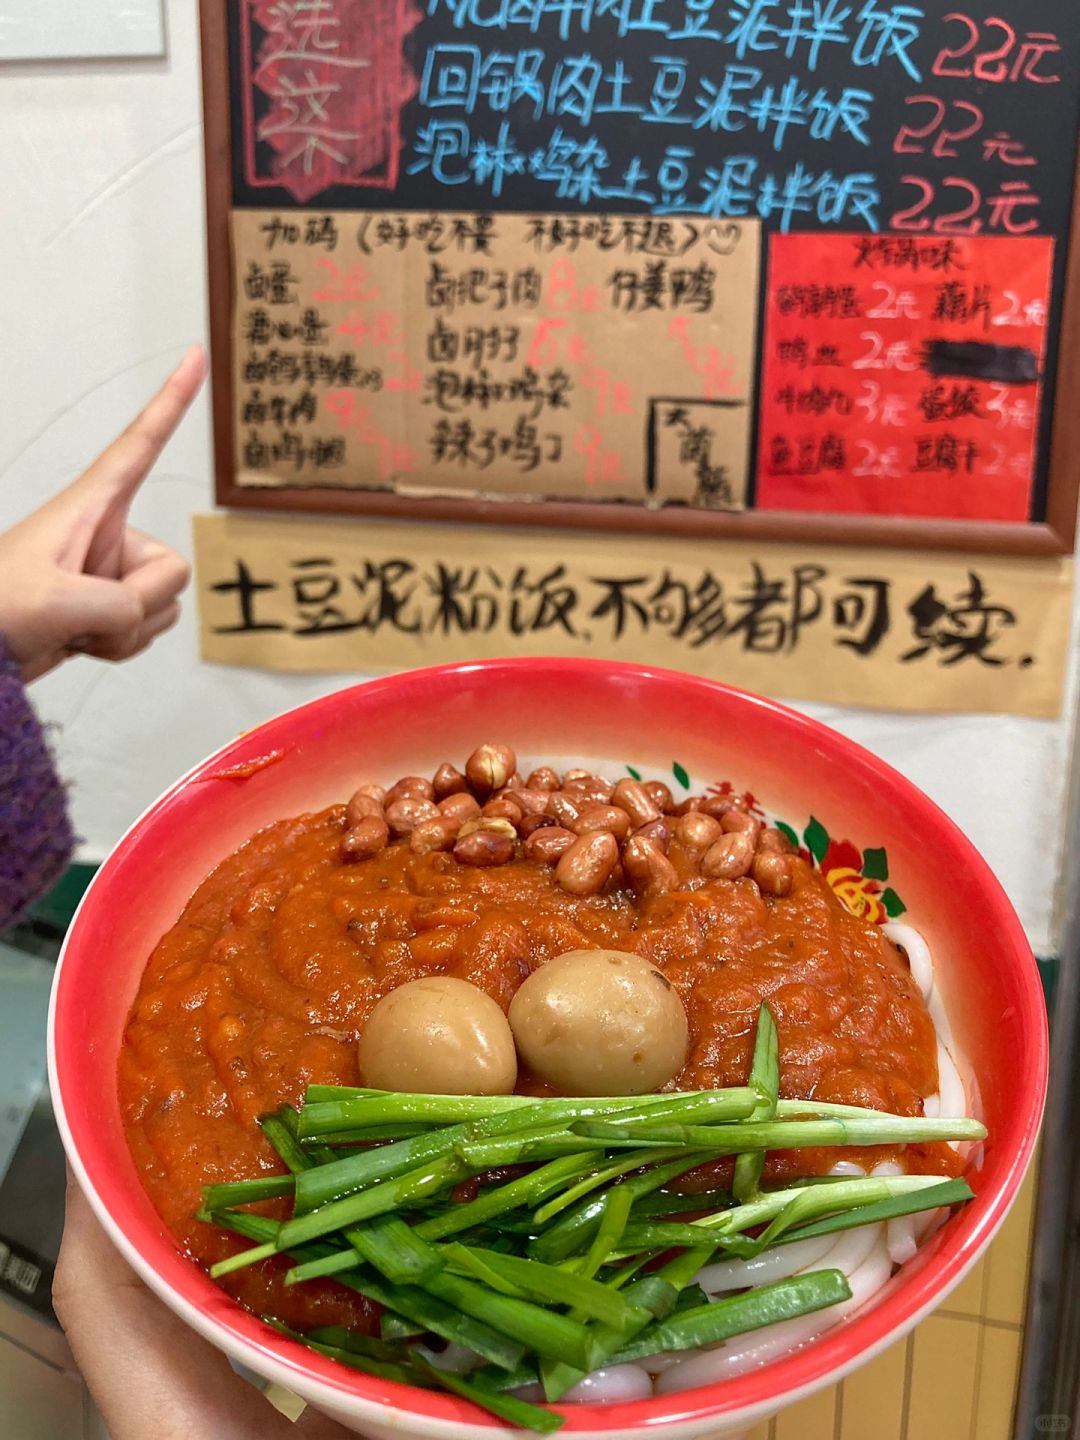 选这
回锅肉土豆泥拌饭 22元
泡椒鸡杂土豆泥拌饭 22元
加码（好吃不要 不好吃不退）
卤蛋 2元
溏心蛋 4元
卤鹌鹑蛋
卤牛肉 9元
卤鸡腿 7元
卤把子肉 8元
卤肘子
泡椒鸡杂 9元
辣子鸡丁 9元
仔姜鸭
9元
火锅味
鹌鹑蛋 2元 藕片 2元
鸭血 2元
牛肉丸 3元 蛋饺 3元
鱼豆腐 2元 豆腐干 2元
土豆泥粉饭.不够都可续.
小红书